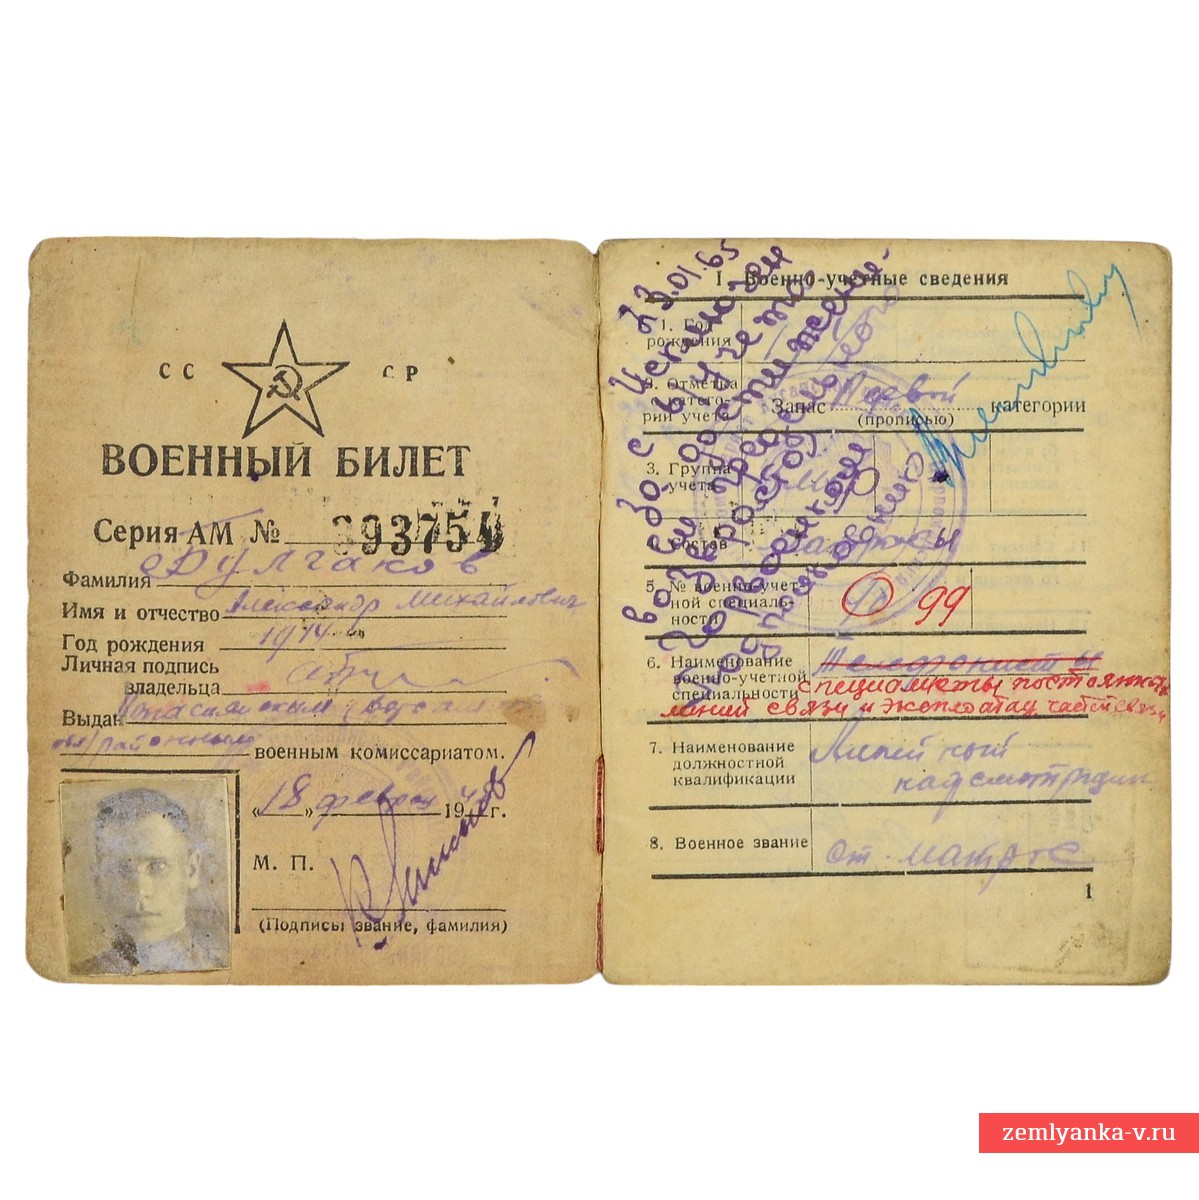 СС СР
ВОЕННЫЙ БИЛЕТ
Серия АМ № 393754
Фамилия Булгаков
Имя и отчество Александр Михайлович
Год рождения 1914
Личная подпись
владельца
Выдан
районным военным комиссариатом.
«18» феврал 19 г.
М. П.
(Подпись, звание, фамилия)
I. Военно-учетные сведения
1. Год
рождения
2. Отметка
о катего-
рии учета
Запас первой категории
(прописью)
3. Группа
учета
Состав Матросы
5. № военно-учет-
ной специаль-
ности
99
6. Наименование
военно-учетной
специальности
Телефонисты
специалисты постоянных
линий связи и эксплоатац частей связи
7. Наименование
должностной
квалификации
Линейный
надсмотрщик
8. Военное звание
ст. матрос
1
23.01.65
Исключен
с в/учета
по достижении
предельного
возраста
zemlyanka-v.ru